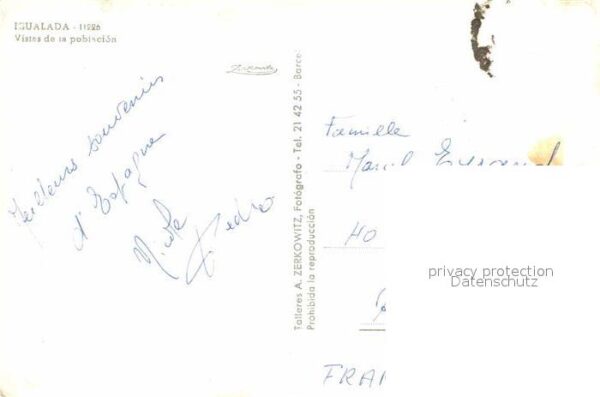 IGUALADA - 11226
Vistas de la población
Meilleurs souvenirs
d'Espagne
Nicole
Pedro
Talleres A. ZERKOWITZ, Fotógrafo - Tel. 21 42 55 - Barcel
Prohibida la reproducción
Famille
Marcel
HO
FRAN
privacy protection
Datenschutz